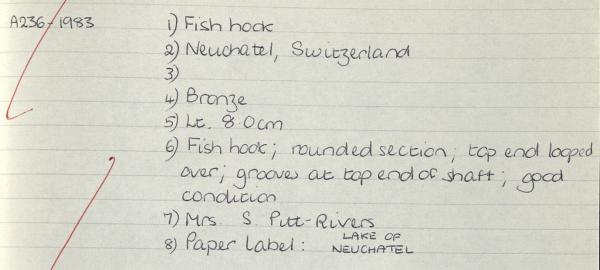 A236-1983
1) Fish hook
2) Neuchatel, Switzerland
3)
4) Bronze
5) Lt. 8.0cm
6) Fish hook; rounded section; top end looped
over; grooves at top end of shaft; good
condition
7) Mrs. S. Pitt-Rivers
8) Paper label: LAKE OF
NEUCHATEL